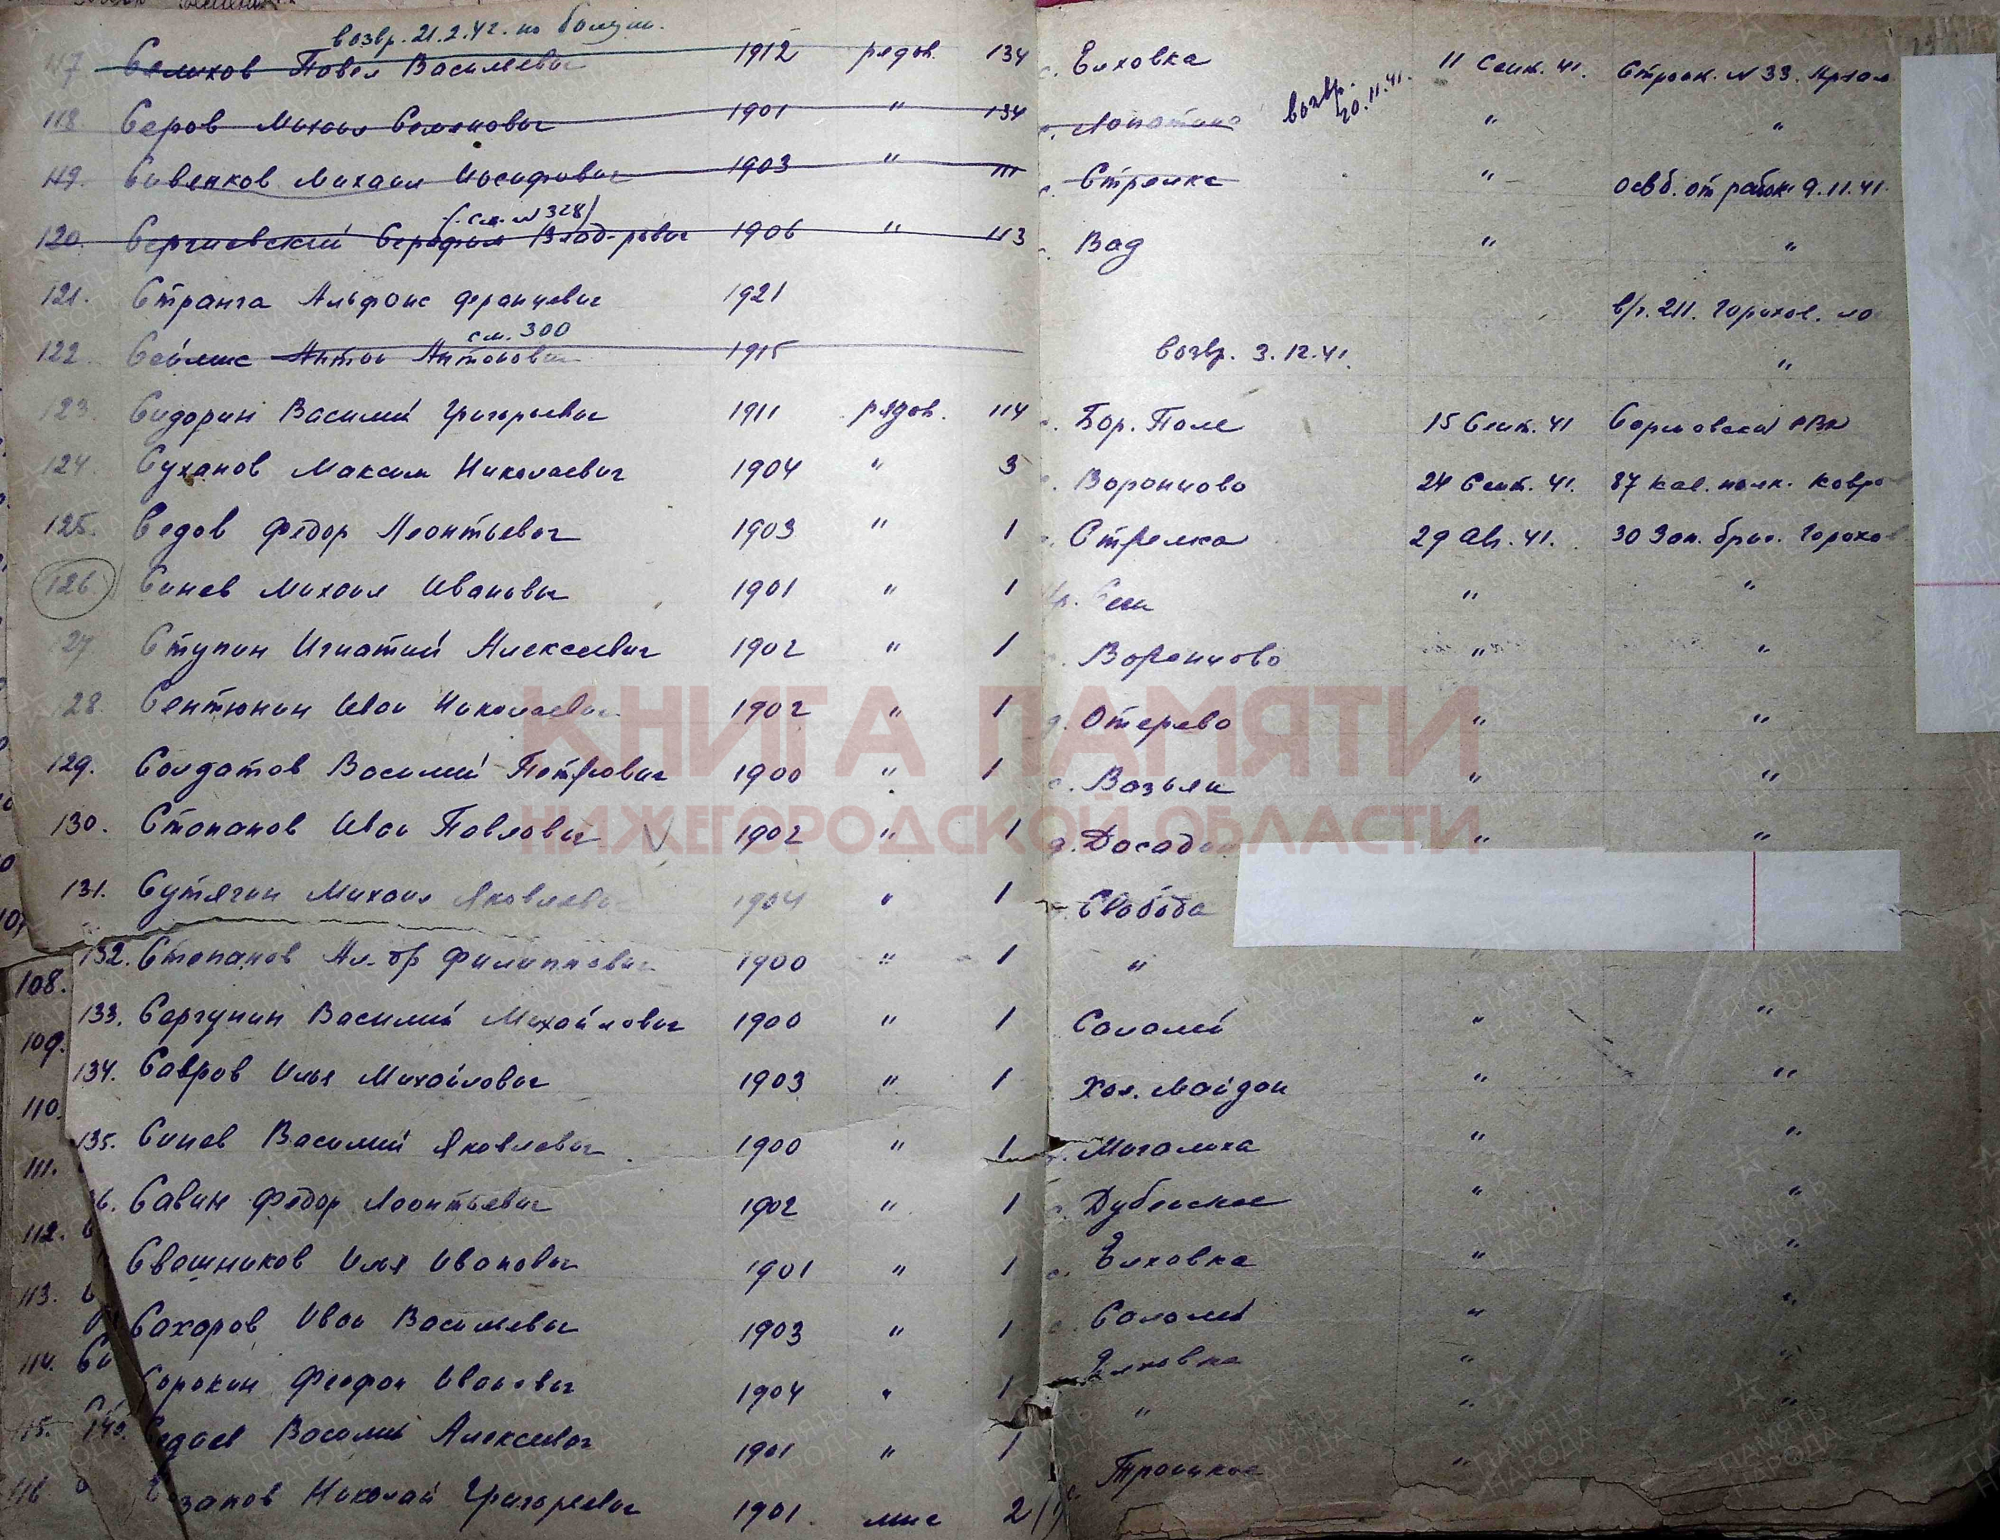 возвр. 21.2.42. по болезн.
117 Селихов Павел Васильевич 1912 рядов. 134 с. Елховка 11 Сент. 41. Строит. N 33. Арзам
118. Серов Михаил Семенович 1901 " 134 Лопатино возвр. 20.11.41. " "
119. Сивенков Михаил Иосифович 1903 " 111 Стрелка " освб. от работ 9.11.41.
(см. N 328)
120. Сергиевский Серафим Влад-рович 1906 " 113 Вад " "
121. Странга Альфонс Францевич 1921 в/ч. 211. Горохов. ла
см. 300
122. Сейлис Антон Антонович 1915 возвр. 3.12.41. "
123. Сидорин Василий Григорьевич 1911 рядов. 114 с. Бор. Поле 15 Сент. 41 Сормовский РВК
124. Суханов Максим Николаевич 1904 " 3 Воронцово 24 Сент. 41. 87 кав. полк. Ковров
125. Седов Федор Леонтьевич 1903 " 1 Стрелка 29 Авг. 41. 30 Зап. бриг. Горохов
126 Синев Михаил Иванович 1901 " 1 " "
127. Ступин Игнатий Алексеевич 1902 " 1 Воронцово " "
128. Сентюнин Иван Николаевич 1902 " 1 д. Отерево " "
129. Солдатов Василий Петрович 1900 " 1 с. Вазьян " "
130. Степанов Иван Павлович V 1902 " 1 д. Досад " "
131. Сутягин Михаил Яковлевич 1904 " 1 Свобода
132. Степанов Ал-др Филиппович 1900 " 1 "
108.
133. Сергунин Василий Михайлович 1900 " 1 Салалей " "
109.
134. Савров Илья Михайлович 1903 " 1 Хол. Майдан " "
110.
135. Синев Василий Яковлевич 1900 " 1 Мигалиха " "
111.
36. Савин Федор Леонтьевич 1902 " 1 с. Дубенское " "
112.
Свешников Илья Иванович 1901 " 1 с. Елховка " "
113.
Сахаров Иван Васильевич 1903 " 1 с. Салалей " "
114.
Сорокин Феофан Иванович 1904 " 1 Елховка " "
115. 140. Седаев Василий Алексеевич 1901 " 1 " " "
116 Николай Григорьевич 1901 2 с. Троицкое "
КНИГА ПАМЯТИ
НИЖЕГОРОДСКОЙ ОБЛАСТИ
ПАМЯТЬ НАРОДА